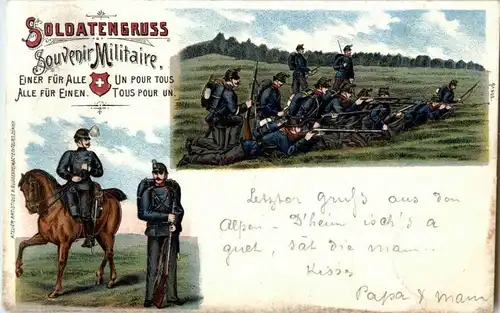 SOLDATENGRUSS
Souvenir Militaire,
EINER FÜR ALLE UN POUR TOUS
ALLE FÜR EINEN. TOUS POUR UN.
Letzter gruß aus den
Alpen - D'heim isch's a
guet, sät die mam...
Kisses
Papa & Mam